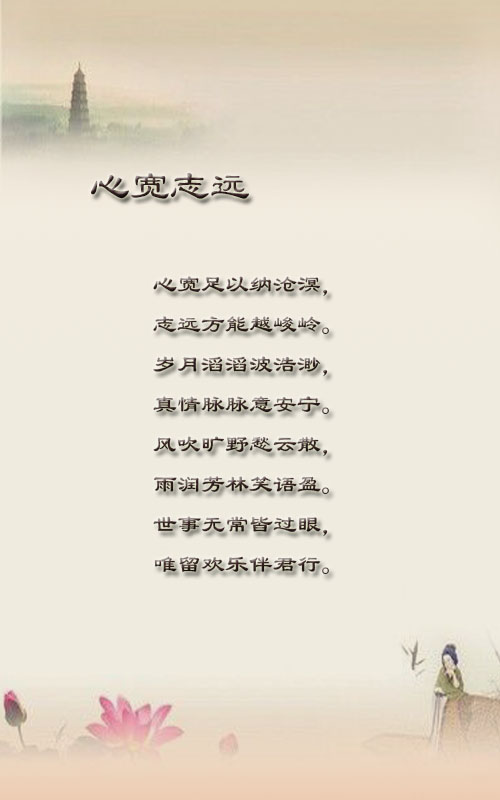 心宽志远
心宽足以纳沧溟，
志远方能越峻岭。
岁月滔滔波浩渺，
真情脉脉意安宁。
风吹旷野愁云散，
雨润芳林笑语盈。
世事无常皆过眼，
唯留欢乐伴君行。